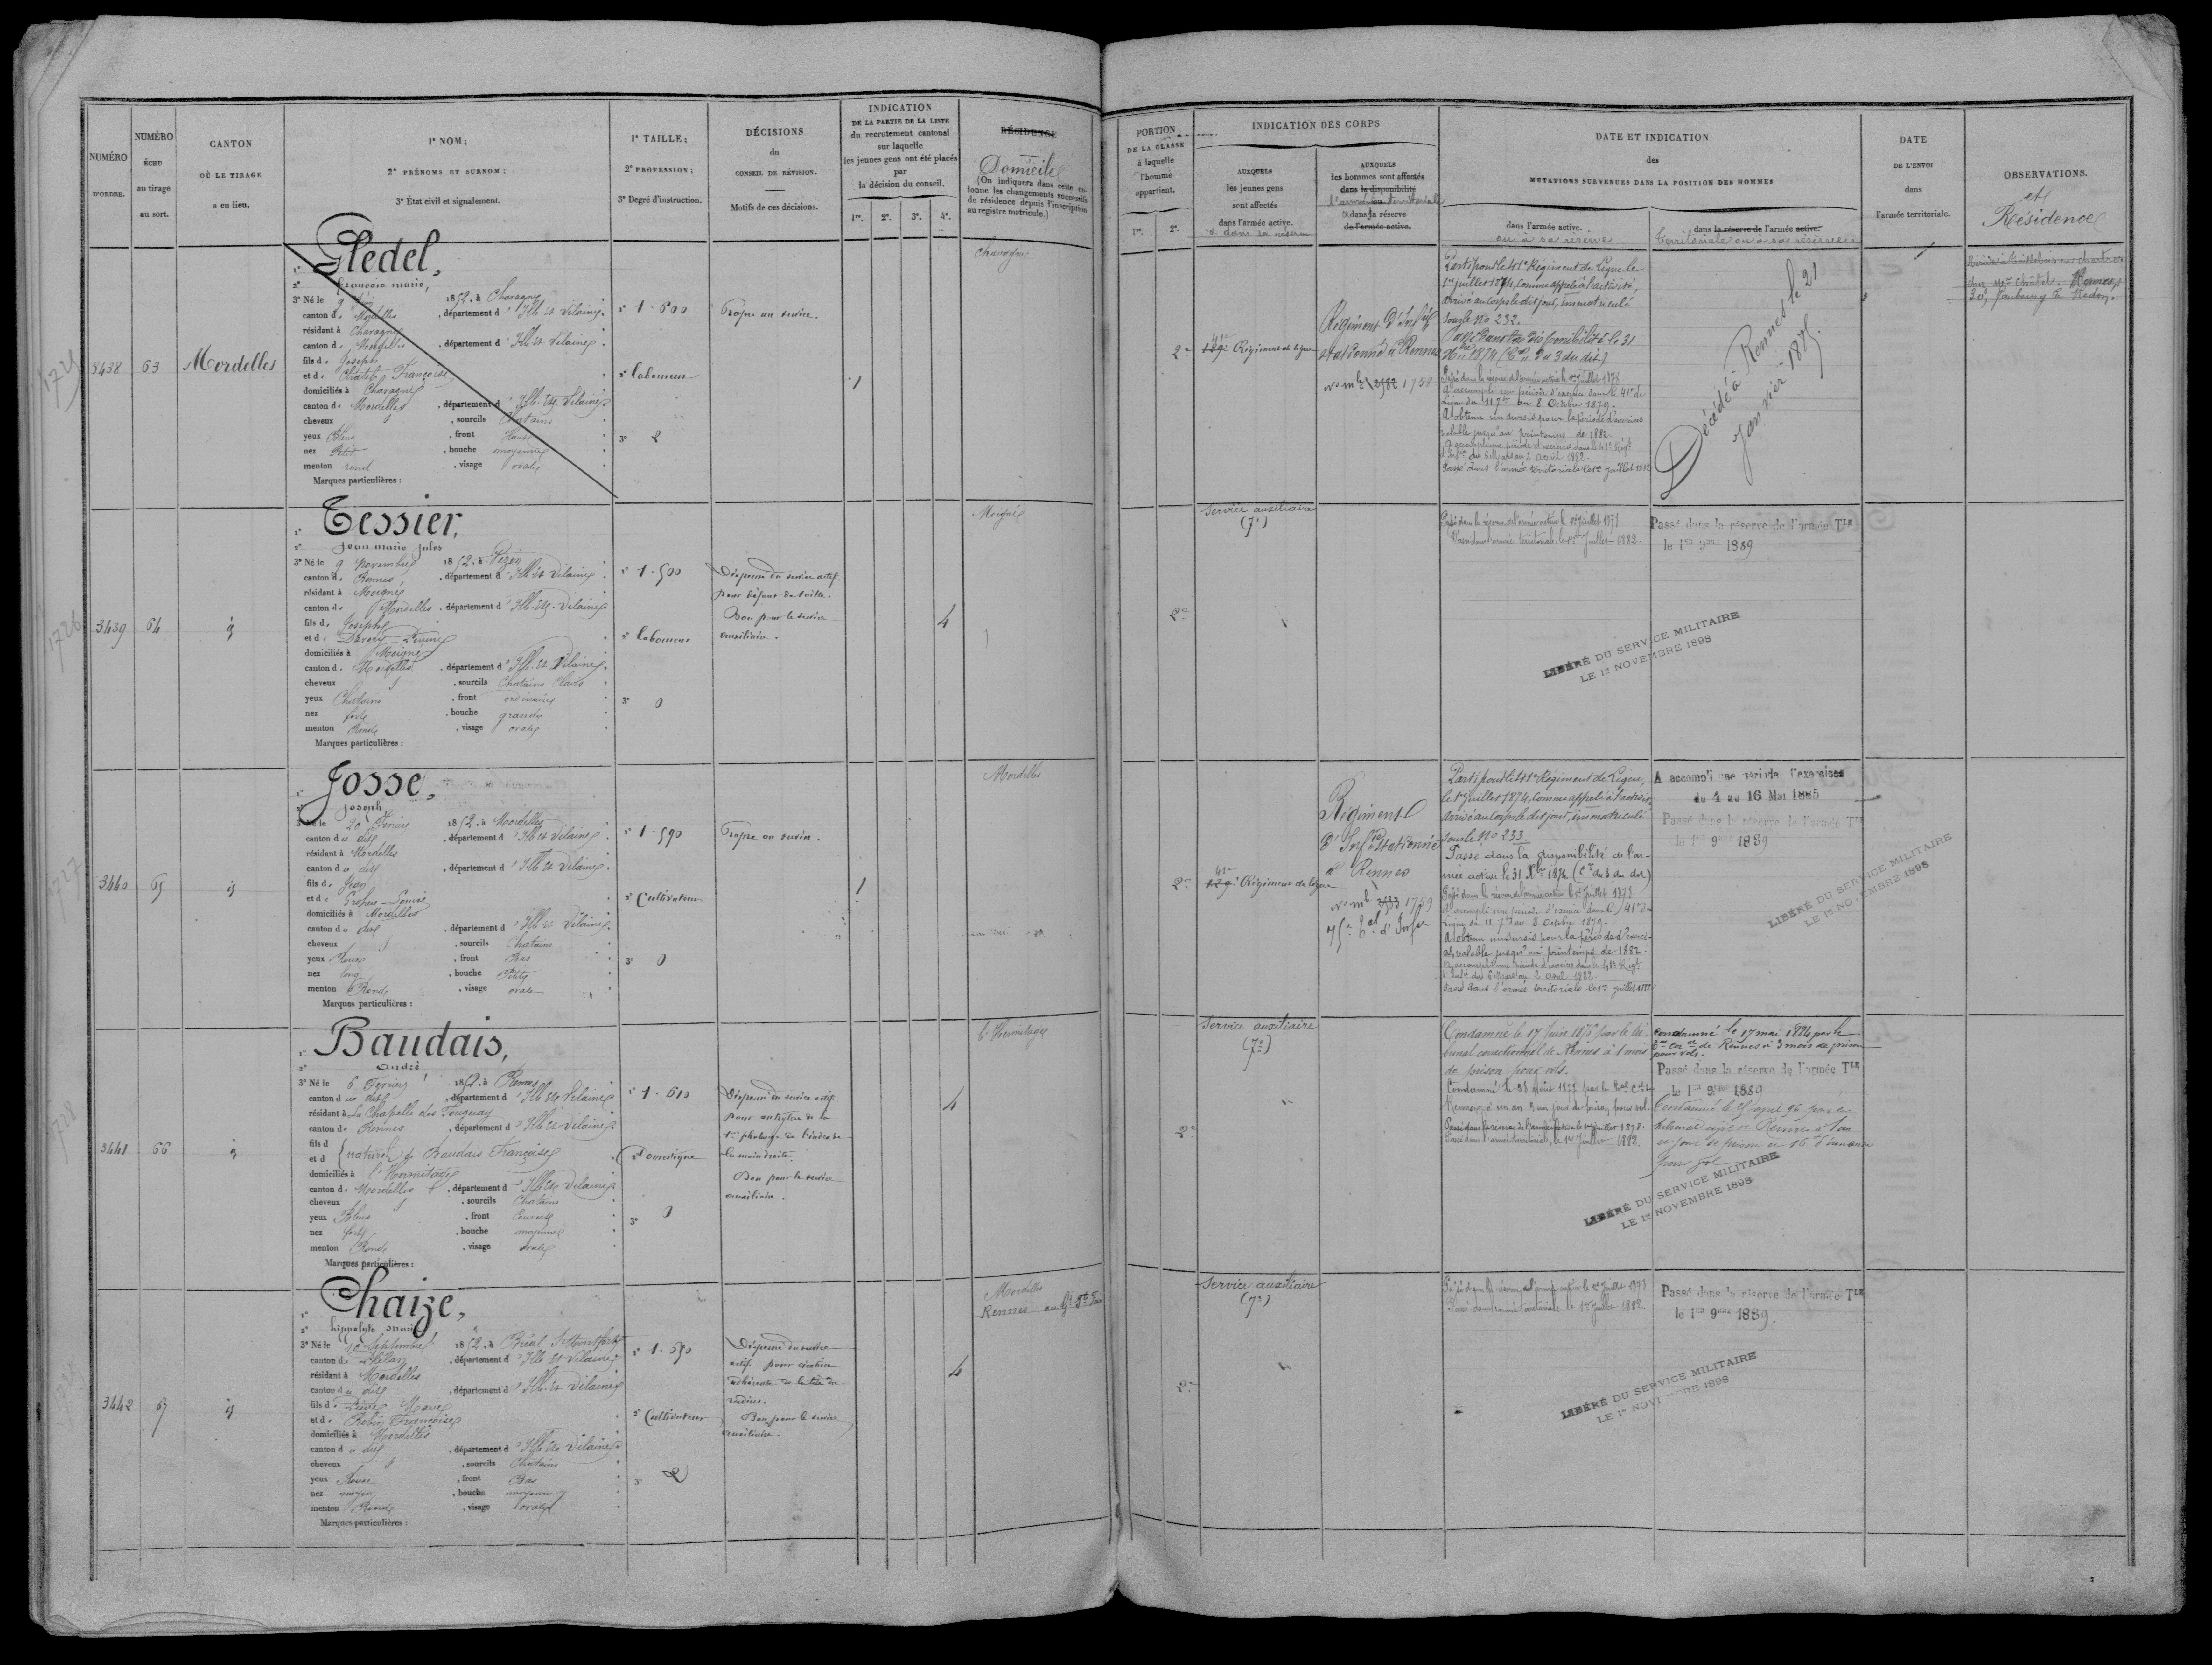 NUMÉRO
D'ORDRE.
NUMÉRO
ÉCHU
au tirage
au sort.
CANTON
OÙ LE TIRAGE
a eu lieu.
1° NOM;
2° PRÉNOMS ET SURNOM;
3° État civil et signalement.
1° TAILLE;
2° PROFESSION;
3° Degré d'instruction.
DÉCISIONS
du
CONSEIL DE RÉVISION.
Motifs de ces décisions.
INDICATION
DE LA PARTIE DE LA LISTE
du recrutement cantonal
sur laquelle
les jeunes gens ont été placés
par
la décision du conseil.
1re. 2e. 3e. 4e.
RÉSIDENCE
Domicile
(On indiquera dans cette co-
lonne les changements successifs
de résidence depuis l'inscription
au registre matricule.)
PORTION
DE LA CLASSE
à laquelle
l'homme
appartient.
1re. 2e.
INDICATION DES CORPS
AUXQUELS
les jeunes gens
sont affectés
dans l'armée active.
et dans sa réserve
AUXQUELS
les hommes sont affectés
dans la disponibilité
l'armée territoriale
et dans la réserve
de l'armée active.
DATE ET INDICATION
des
MUTATIONS SURVENUES DANS LA POSITION DES HOMMES
dans l'armée active.
ou à sa réserve
dans la réserve de l'armée active.
territoriale ou à sa réserve
DATE
DE L'ENVOI
dans
l'armée territoriale.
OBSERVATIONS.
et
Résidence
3438
63
Mordelles
1° Gledel,
2° François Marie,
3° Né le 9 1852, à Chavagne
canton de Mordelles, département d'Ille-et-Vilaine.
résidant à Chavagne
canton de Mordelles, département d'Ille-et-Vilaine
fils de Joseph
et de Françoise
domiciliés à Chavagne
canton de Mordelles, département d'Ille-et-Vilaine
cheveux, sourcils Chatains
yeux Bleus, front Haut
nez Petit, bouche moyenne
menton rond, visage ovale
Marques particulières :
1° 1.600
2° laboureur
3° 2
Propre au service.
1
Chavagne
2e
41e 129e Régiment de ligne
Régiment d'Infie
stationné à Rennes
no mle 2582 1758
Parti pour le 41e Régiment de Ligne le
1er juillet 1874, comme appelé à l'activité,
arrivé au corps le dit jour, immatriculé
sous le No 232.
Passé dans la disponibilité le 31
Xbre 1874
Passé dans la réserve de l'armée active le 1er juillet 1878
A accompli une période d'exercices dans le 41e de
Ligne du 11 7bre au 8 Octobre 1879.
A obtenu un sursis pour la période d'exercices
valable jusqu'au printemps de 1882.
A accompli une période d'exercices dans le 41e Régt
d'Infie du 6 Mars au 2 avril 1882.
Passé dans l'armée territoriale le 1er juillet 1882
Décédé à Rennes le 21
janvier 1885.
Rennes,
30, faubourg de Redon.
3439
64
id
1° Tessier,
2° Jean marie Jules
3° Né le 9 Novembre 1852, à Vezin
canton de Rennes, département d'Ille-et-Vilaine
résidant à Moigné
canton de Mordelles, département d'Ille-et-Vilaine
fils de Joseph
et de
domiciliés à Moigné
canton de Mordelles, département d'Ille-et-Vilaine
cheveux, sourcils Chatains Clairs
yeux Chatains, front ordinaire
nez fort, bouche grande
menton Rond, visage ovale
Marques particulières :
1° 1.500
2° laboureur
3° 0
Dispensé du service actif
pour défaut de taille.
Bon pour le service
auxiliaire.
4
Moigné
2e
Service auxiliaire
(7e)
Passé dans la réserve de l'armée active le 1er juillet 1878
Passé dans l'armée territoriale, le 1er Juillet 1882.
Passé dans la réserve de l'armée Tle
le 1er 9bre 1889
LIBÉRÉ DU SERVICE MILITAIRE
LE 1er NOVEMBRE 1898
3440
65
id
1° Josse,
2° Joseph
3° Né le 20 Février 1852, à Mordelles
canton du dit, département d'Ille-et-Vilaine
résidant à Mordelles
canton du dit, département d'Ille-et-Vilaine
fils de Jean
et de Louise
domiciliés à Mordelles
canton du dit, département d'Ille-et-Vilaine
cheveux, sourcils Chatains
yeux Roux, front Bas
nez long, bouche Petite
menton Rond, visage ovale
Marques particulières :
1° 1.590
2° Cultivateur
3° 0
Propre au service.
1
Mordelles
2e
41e 129e Régiment de ligne
Régiment
d'Infie stationné
à Rennes
no mle 2583 1759
75e d'Infie
Parti pour le 41e Régiment de Ligne,
le 1er juillet 1874, comme appelé à l'activité,
arrivé au corps le dit jour, immatriculé
sous le No 233
Passé dans la disponibilité de l'ar-
mée active le 31 Xbre 1874
Passé dans la réserve de l'armée active le 1er Juillet 1878
A accompli une période d'exercices dans le 41e de
Ligne du 11 7bre au 8 Octobre 1879.
A obtenu un sursis pour la période d'exerci-
ces, valable jusqu'au printemps de 1882.
A accompli une période d'exercices dans le 41e Régt
d'Infie du 6 Mars au 2 avril 1882.
Passé dans l'armée territoriale le 1er juillet 1882
A accompli une période d'exercices
du 4 au 16 Mai 1885
Passé dans la réserve de l'armée Tle
le 1er 9bre 1889
LIBÉRÉ DU SERVICE MILITAIRE
LE 1er NOVEMBRE 1898
3441
66
id
1° Baudais,
2° André
3° Né le 6 Février 1852, à Rennes
canton du dit, département d'Ille-et-Vilaine
résidant à La Chapelle des Fougeray
canton de Rennes, département d'Ille-et-Vilaine
fils d
et d naturel de Baudais Françoise
domiciliés à l'Hermitage
canton de Mordelles, département d'Ille-et-Vilaine
cheveux, sourcils Chatains
yeux Bleus, front Couvert
nez fort, bouche moyenne
menton Rond, visage ovale
Marques particulières :
1° 1.610
2° domestique
3° 0
Dispensé du service actif
pour de la
1re phalange de l'index de
la main droite.
Bon pour le service
auxiliaire.
4
l'Hermitage
2e
Service auxiliaire
(7e)
Condamné le 17 Juin par le tri-
bunal correctionnel de Rennes à 1 mois
de prison pour vols.
Condamné le 23 Août par le
Rennes, à un an et un jour de prison, pour vol.
Passé dans la réserve de l'armée active le 1er juillet 1878.
Passé dans l'armée territoriale, le 1er Juillet 1882.
Condamné le 17 mai 1884 par le
de Rennes à 3 mois de prison
pour vols.
Passé dans la réserve de l'armée Tle
le 1er 9bre 1889
Condamné le avril 96 par le
tribunal de Rennes à 1 an
un jour de prison et 16f d'amende
pour vol
LIBÉRÉ DU SERVICE MILITAIRE
LE 1er NOVEMBRE 1898
3442
67
id
1° Chaize,
2° hippolyte marie
3° Né le 10 Septembre 1852, à Bréal
canton de Plélan, département d'Ille-et-Vilaine
résidant à Mordelles
canton du dit, département d'Ille-et-Vilaine
fils de Pierre Marie
et de Robin Françoise
domiciliés à Mordelles
canton du dit, département d'Ille-et-Vilaine
cheveux, sourcils Chatains
yeux Roux, front Bas
nez moyen, bouche moyenne
menton Rond, visage ovale
Marques particulières :
1° 1.590
2° Cultivateur
3° 2
Dispensé du service
actif pour cicatrice
adhérente de la tête du
radius.
Bon pour le service
auxiliaire.
4
Mordelles
Rennes
2e
Service auxiliaire
(7e)
Passé dans la réserve de l'armée active le 1er Juillet 1878
Passé dans l'armée territoriale le 1er Juillet 1882
Passé dans la réserve de l'armée Tle
le 1er 9bre 1889.
LIBÉRÉ DU SERVICE MILITAIRE
LE 1er NOVEMBRE 1898